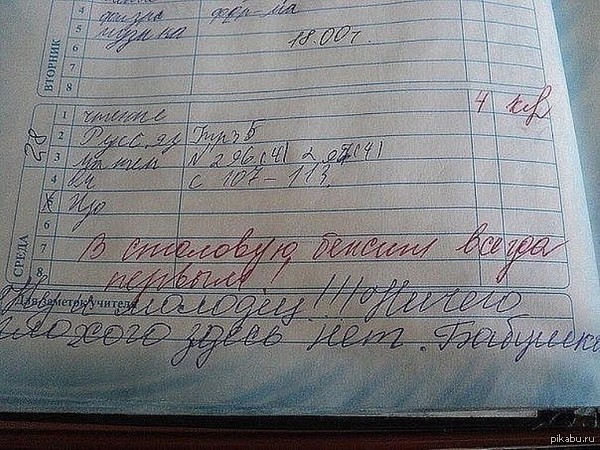 4 физик
5 музыка
форма
18.00 г.
6
7
8
ВТОРНИК
28
1 чтение
4
2 Русс. яз Упр 5
3 N 296 (4) 297 (4)
4 с 107-113
5
6
7 В столовую бежит всегда
8 первым
СРЕДА
Для заметок учителя
Ну и молодец!!! Ничего
плохого здесь нет. Бабушка
pikabu.ru